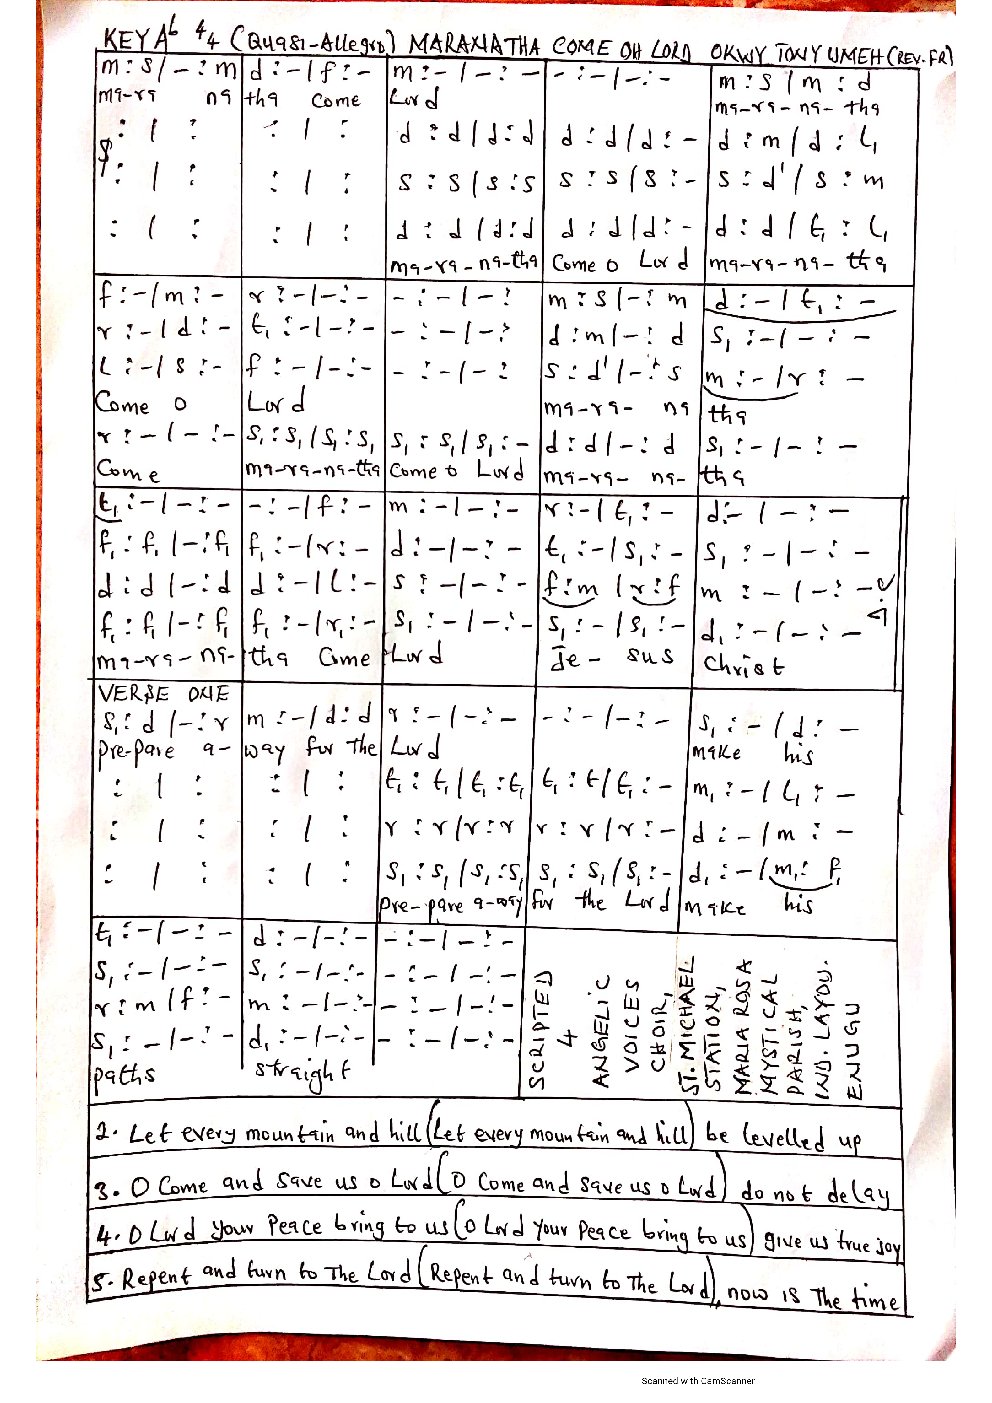 KEY Ab 4/4 (Quasi-Allegro) MARANATHA COME OH LORD OKWY TONY UMEH (REV. FR)
m : s / – : m | d : – / f : – | m : – / – : – | – : – / – : – | m : s / m : d
ma-ra na | tha come | Lord | | ma-ra-na-tha
: / : | : / : | d : d / d : d | d : d / d : – | d : m / d : l₁
: / : | : / : | s : s / s : s | s : s / s : – | s : d' / s : m
: / : | : / : | d : d / d : d | d : d / d : – | d : d / t₁ : l₁
ma-ra-na-tha | Come o Lord | ma-ra-na-tha
f : – / m : – | r : – / – : – | – : – / – : | m : s / – : m | d : – / t₁ : –
r : – / d : – | t₁ : – / – : – | – : – / – : | d : m / – : d | s₁ : – / – : –
l : – / s : – | f : – / – : – | – : – / – : | s : d' / – : s | m : – / r : –
Come o | Lord | | ma-ra- na | tha
r : – / – : – | s₁ : s₁ / s₁ : s₁ | s₁ : s₁ / s₁ : – | d : d / – : d | s₁ : – / – : –
Come | ma-ra-na-tha | Come o Lord | ma-ra- na- | tha
t₁ : – / – : – | – : – / f : – | m : – / – : – | r : – / t₁ : – | d : – / – : –
f₁ : f₁ / – : f₁ | f₁ : – / r : – | d : – / – : – | t₁ : – / s₁ : – | s₁ : – / – : –
d : d / – : d | d : – / l : – | s : – / – : – | f : m / r : f | m : – / – : –
f₁ : f₁ / – : f₁ | f₁ : – / r₁ : – | s₁ : – / – : – | s₁ : – / s₁ : – | d₁ : – / – : –
ma-ra- na- | tha Come | Lord | Je- sus | Christ
VERSE ONE
s₁ : d / – : r | m : – / d : d | r : – / – : – | – : – / – : – | s₁ : – / d : –
pre-pare a- | way for the | Lord | | make his
: / : | : / : | t₁ : t₁ / t₁ : t₁ | t₁ : t / t₁ : – | m₁ : – / l₁ : –
: / : | : / : | r : r / r : r | r : r / r : – | d : – / m : –
: / : | : / : | s₁ : s₁ / s₁ : s₁ | s₁ : s₁ / s₁ : – | d₁ : – / m₁ : f₁
pre-pare a-way | for the Lord | make his
t₁ : – / – : – | d : – / – : – | – : – / – : –
s₁ : – / – : – | s₁ : – / – : – | – : – / – : –
r : m / f : – | m : – / – : – | – : – / – : –
s₁ : – / – : – | d₁ : – / – : – | – : – / – : –
paths | straight
SCRIPTED
4
ANGELIC
VOICES
CHOIR,
ST. MICHAEL
STATION,
MARIA ROSA
MYSTICAL
PARISH,
IND. LAYOU.
ENUGU
2. Let every mountain and hill (Let every mountain and hill) be levelled up
3. O Come and save us o Lord (O Come and save us o Lord) do not delay
4. O Lord your Peace bring to us (O Lord your Peace bring to us) give us true joy
5. Repent and turn to The Lord (Repent and turn to The Lord), now is The time
Scanned with CamScanner